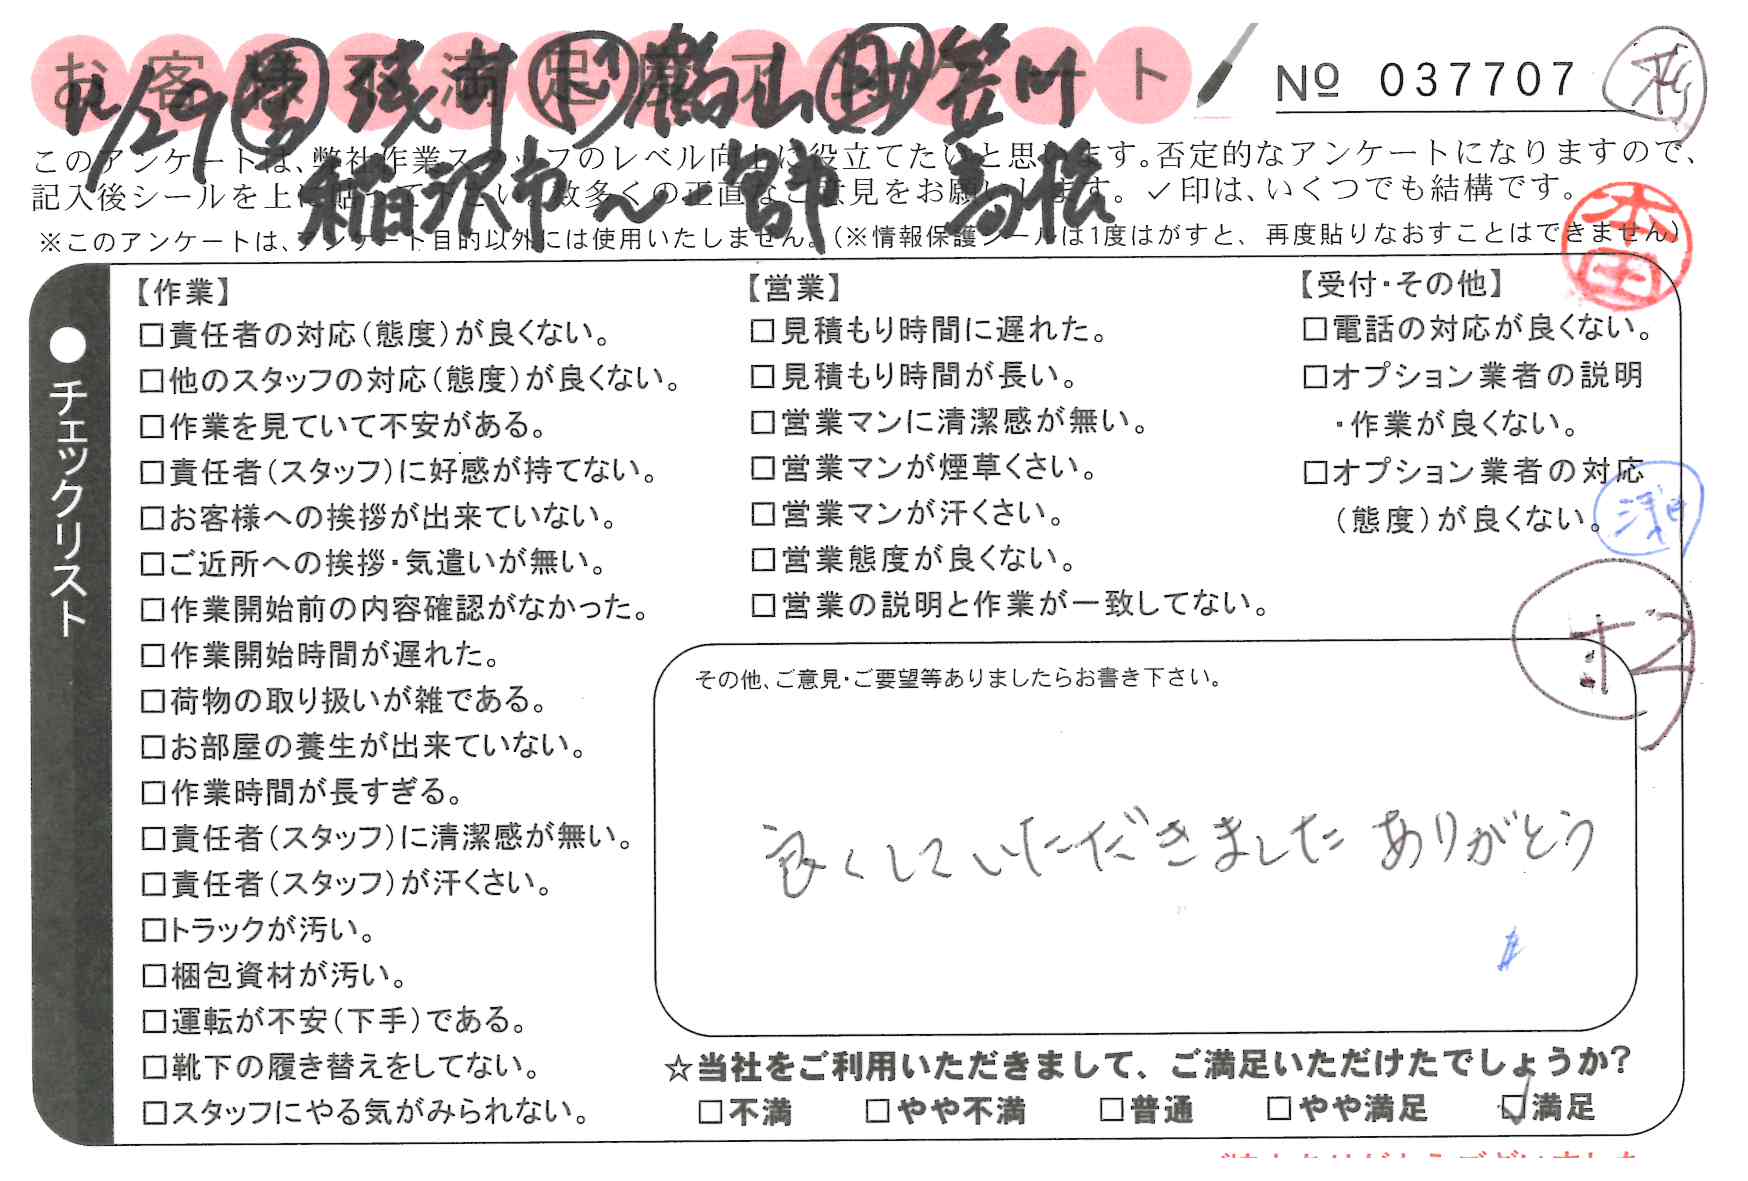 お客様不満足度アンケート
№ 037707
12/29 営 浅井 リ 鶴山 助 笠川
稲沢市〜一宮市 高松
このアンケートは、弊社作業スタッフのレベル向上に役立てたいと思います。否定的なアンケートになりますので、
記入後シールを上に貼って下さい。数多くの正直なご意見をお願いします。✓印は、いくつでも結構です。
※このアンケートは、アンケート目的以外には使用いたしません。(※情報保護シールは1度はがすと、再度貼りなおすことはできません)
本田
●チェックリスト
【作業】
□責任者の対応(態度)が良くない。
□他のスタッフの対応(態度)が良くない。
□作業を見ていて不安がある。
□責任者(スタッフ)に好感が持てない。
□お客様への挨拶が出来ていない。
□ご近所への挨拶・気遣いが無い。
□作業開始前の内容確認がなかった。
□作業開始時間が遅れた。
□荷物の取り扱いが雑である。
□お部屋の養生が出来ていない。
□作業時間が長すぎる。
□責任者(スタッフ)に清潔感が無い。
□責任者(スタッフ)が汗くさい。
□トラックが汚い。
□梱包資材が汚い。
□運転が不安(下手)である。
□靴下の履き替えをしてない。
□スタッフにやる気がみられない。
【営業】
□見積もり時間に遅れた。
□見積もり時間が長い。
□営業マンに清潔感が無い。
□営業マンが煙草くさい。
□営業マンが汗くさい。
□営業態度が良くない。
□営業の説明と作業が一致してない。
【受付・その他】
□電話の対応が良くない。
□オプション業者の説明
・作業が良くない。
□オプション業者の対応
(態度)が良くない。
その他、ご意見・ご要望等ありましたらお書き下さい。
良くしていただきました ありがとう
☆当社をご利用いただきまして、ご満足いただけたでしょうか?
□不満 □やや不満 □普通 □やや満足 ☑満足